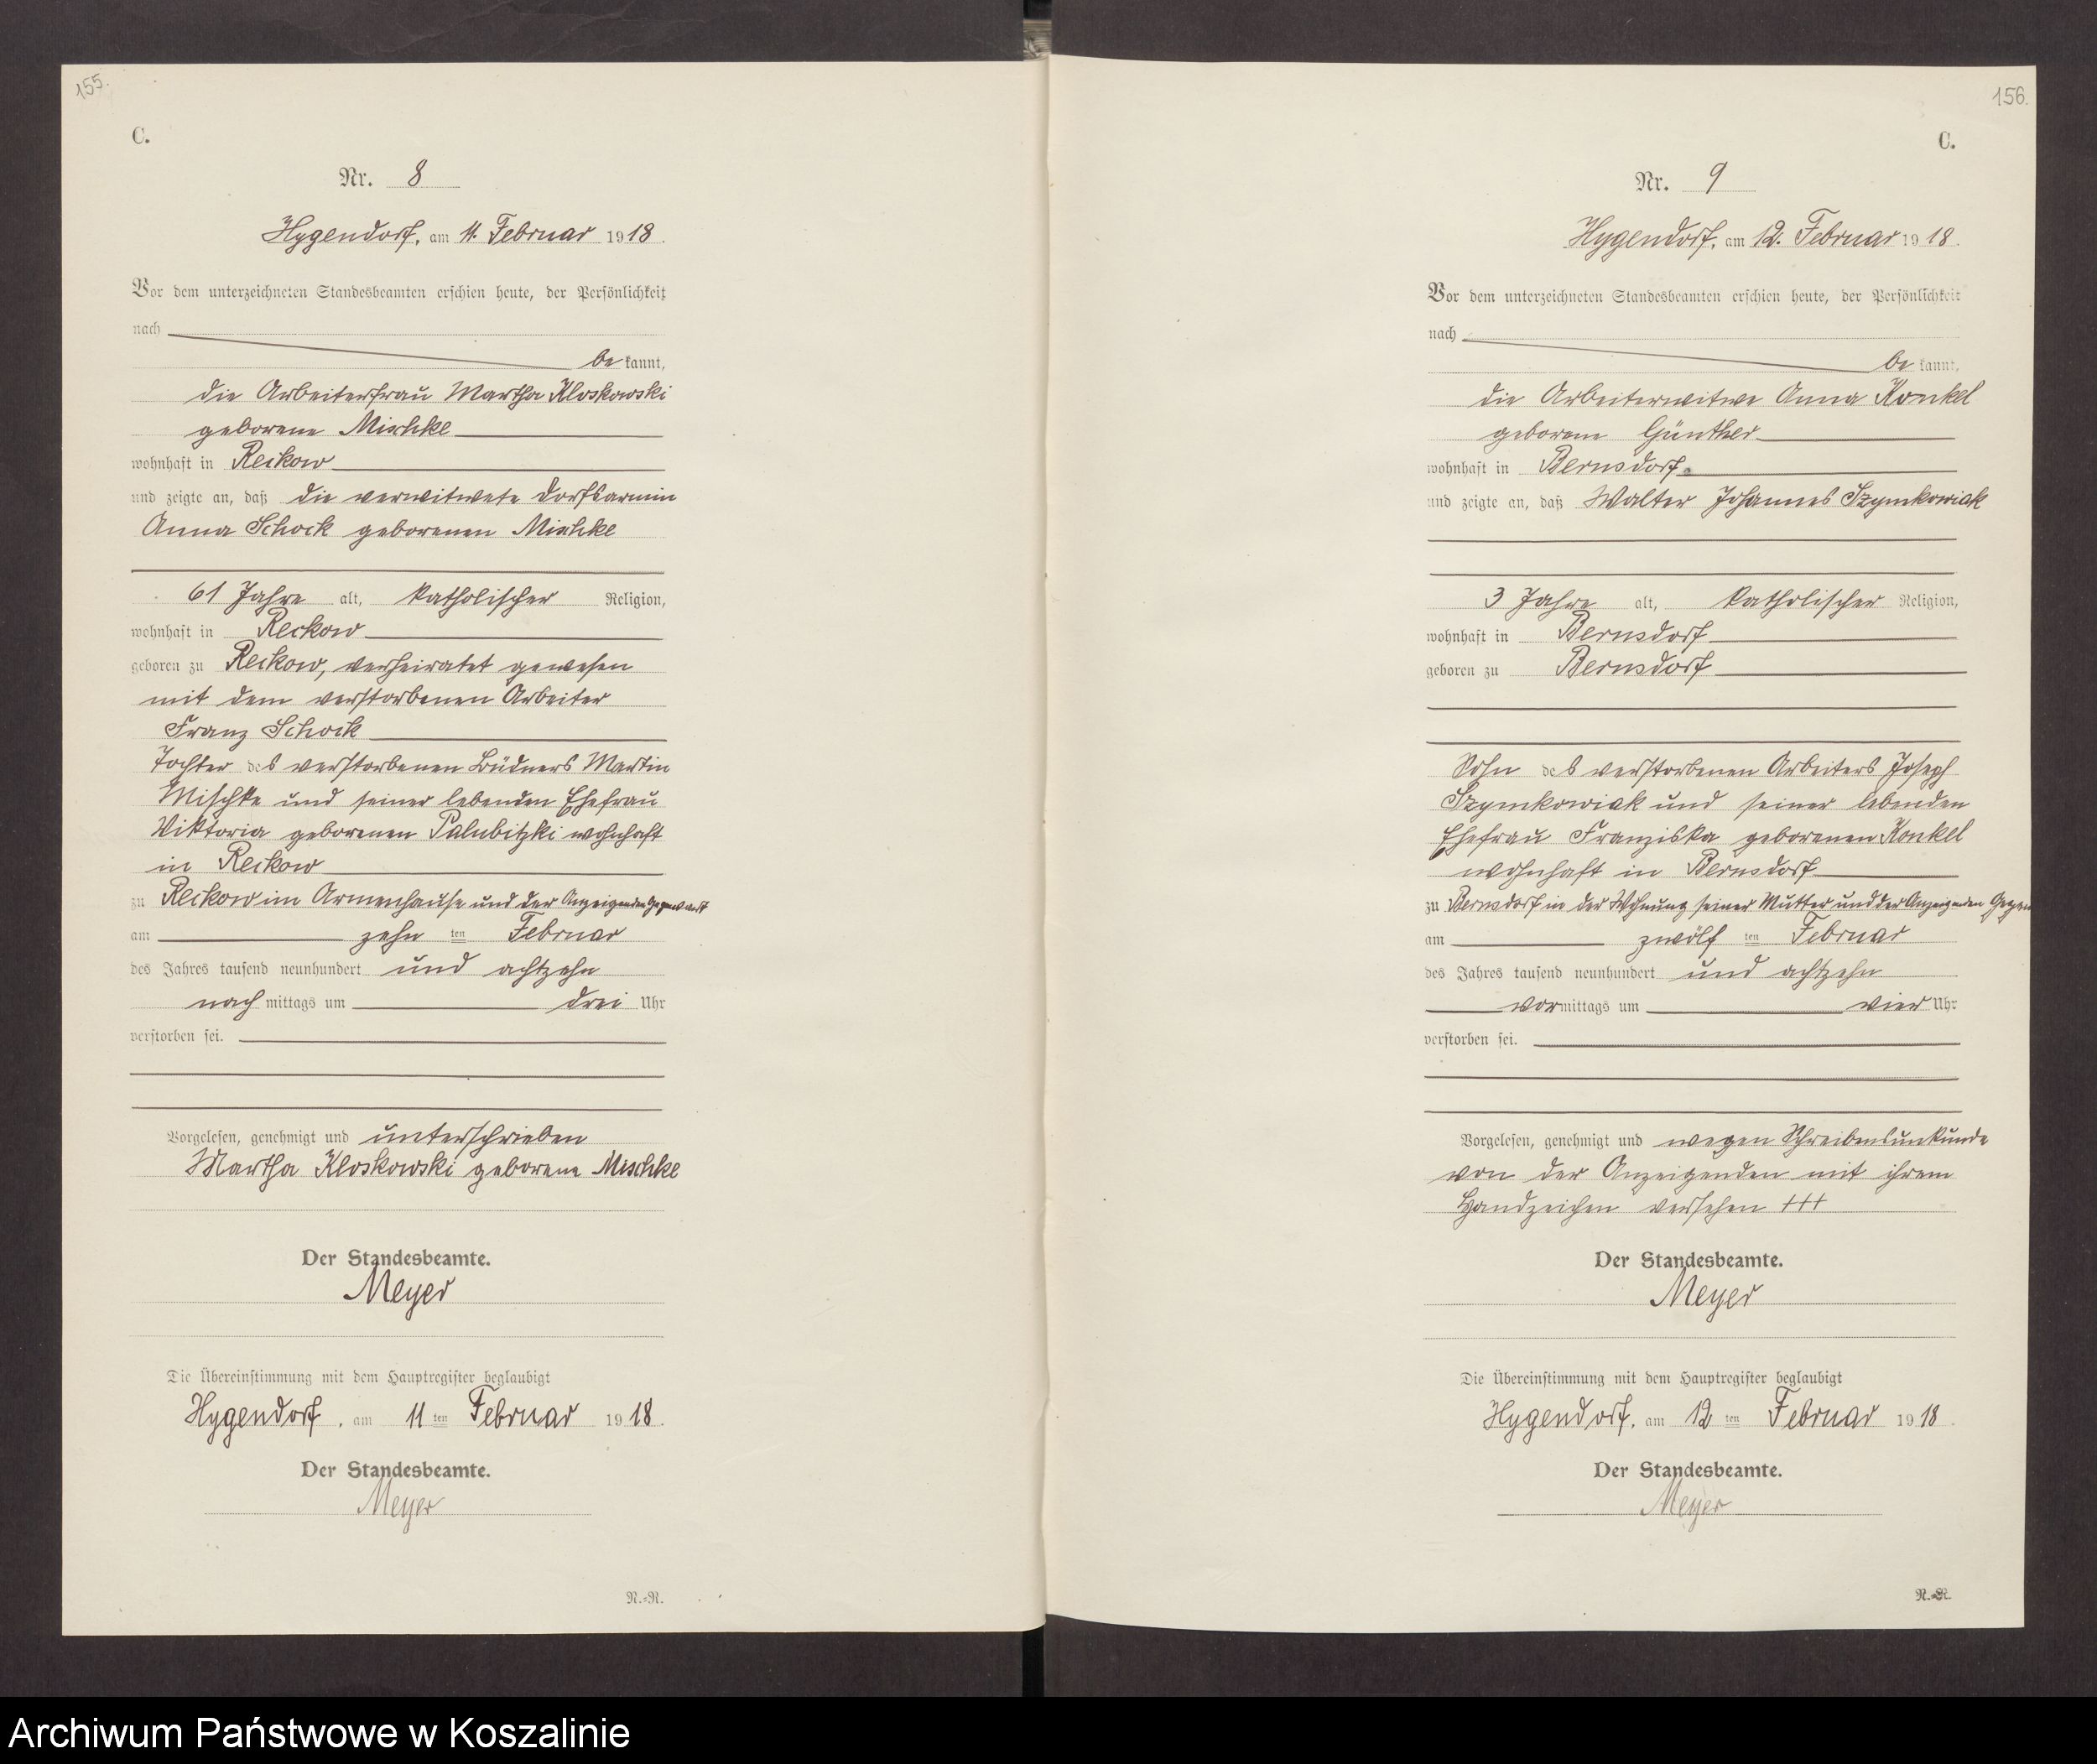 155.
C.
Nr. 8
Hygendorf, am 11. Februar 1918.
Vor dem unterzeichneten Standesbeamten erschien heute, der Persönlichkeit
nach
be kannt,
die Arbeiterfrau Martha Kloskowski
geborene Mischke
wohnhaft in Reckow
und zeigte an, daß die verwitwete Dorfsarmin
Anna Schock geborenen Mischke
61 Jahre alt, katholischer Religion,
wohnhaft in Reckow
geboren zu Reckow, verheiratet gewesen
mit dem verstorbenen Arbeiter
Franz Schock
Tochter des verstorbenen Büdners Martin
Mischke und seiner lebenden Ehefrau
Viktoria geborenen Palubitzki wohnhaft
in Reckow
zu Reckow im Armenhause und der Anzeigenden Gegenwart
am zehn ten Februar
des Jahres tausend neunhundert und achtzehn
nach mittags um drei Uhr
verstorben sei.
Vorgelesen, genehmigt und unterschrieben
Martha Kloskowski geborene Mischke
Der Standesbeamte.
Meyer
Die Übereinstimmung mit dem Hauptregister beglaubigt
Hygendorf, am 11 ten Februar 1918.
Der Standesbeamte.
Meyer
N.-N.
156.
C.
Nr. 9
Hygendorf, am 12. Februar 1918.
Vor dem unterzeichneten Standesbeamten erschien heute, der Persönlichkeit
nach
be kannt,
die Arbeiterwitwe Anna Konkel
geborene Günther
wohnhaft in Bernsdorf
und zeigte an, daß Walter Johannes Szymkowiak
3 Jahre alt, katholischer Religion,
wohnhaft in Bernsdorf
geboren zu Bernsdorf
Sohn des verstorbenen Arbeiters Joseph
Szymkowiak und seiner lebenden
Ehefrau Franziska geborenen Konkel
wohnhaft in Bernsdorf
zu Bernsdorf in der Wohnung seiner Mutter und der Anzeigenden Gegen
am zwölf ten Februar
des Jahres tausend neunhundert und achtzehn
vor mittags um vier Uhr
verstorben sei.
Vorgelesen, genehmigt und wegen Schreibensunkunde
von der Anzeigenden mit ihrem
Handzeichen versehen +++
Der Standesbeamte.
Meyer
Die Übereinstimmung mit dem Hauptregister beglaubigt
Hygendorf, am 12 ten Februar 1918.
Der Standesbeamte.
Meyer
N.-N.
Archiwum Państwowe w Koszalinie